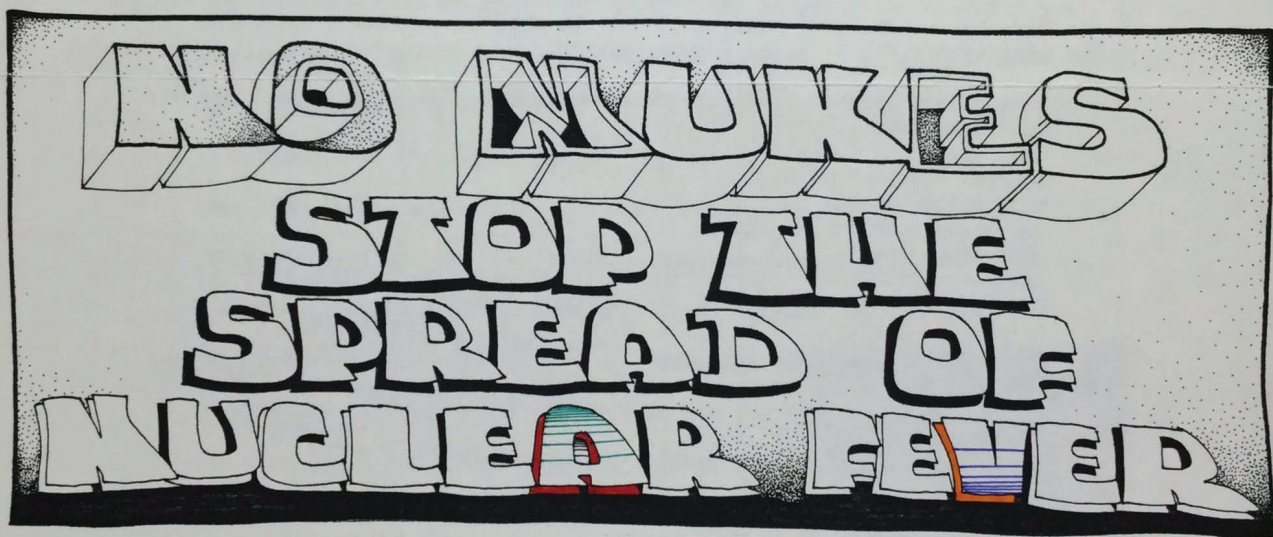 NO NUKES
STOP THE
SPREAD OF
NUCLEAR FEVER